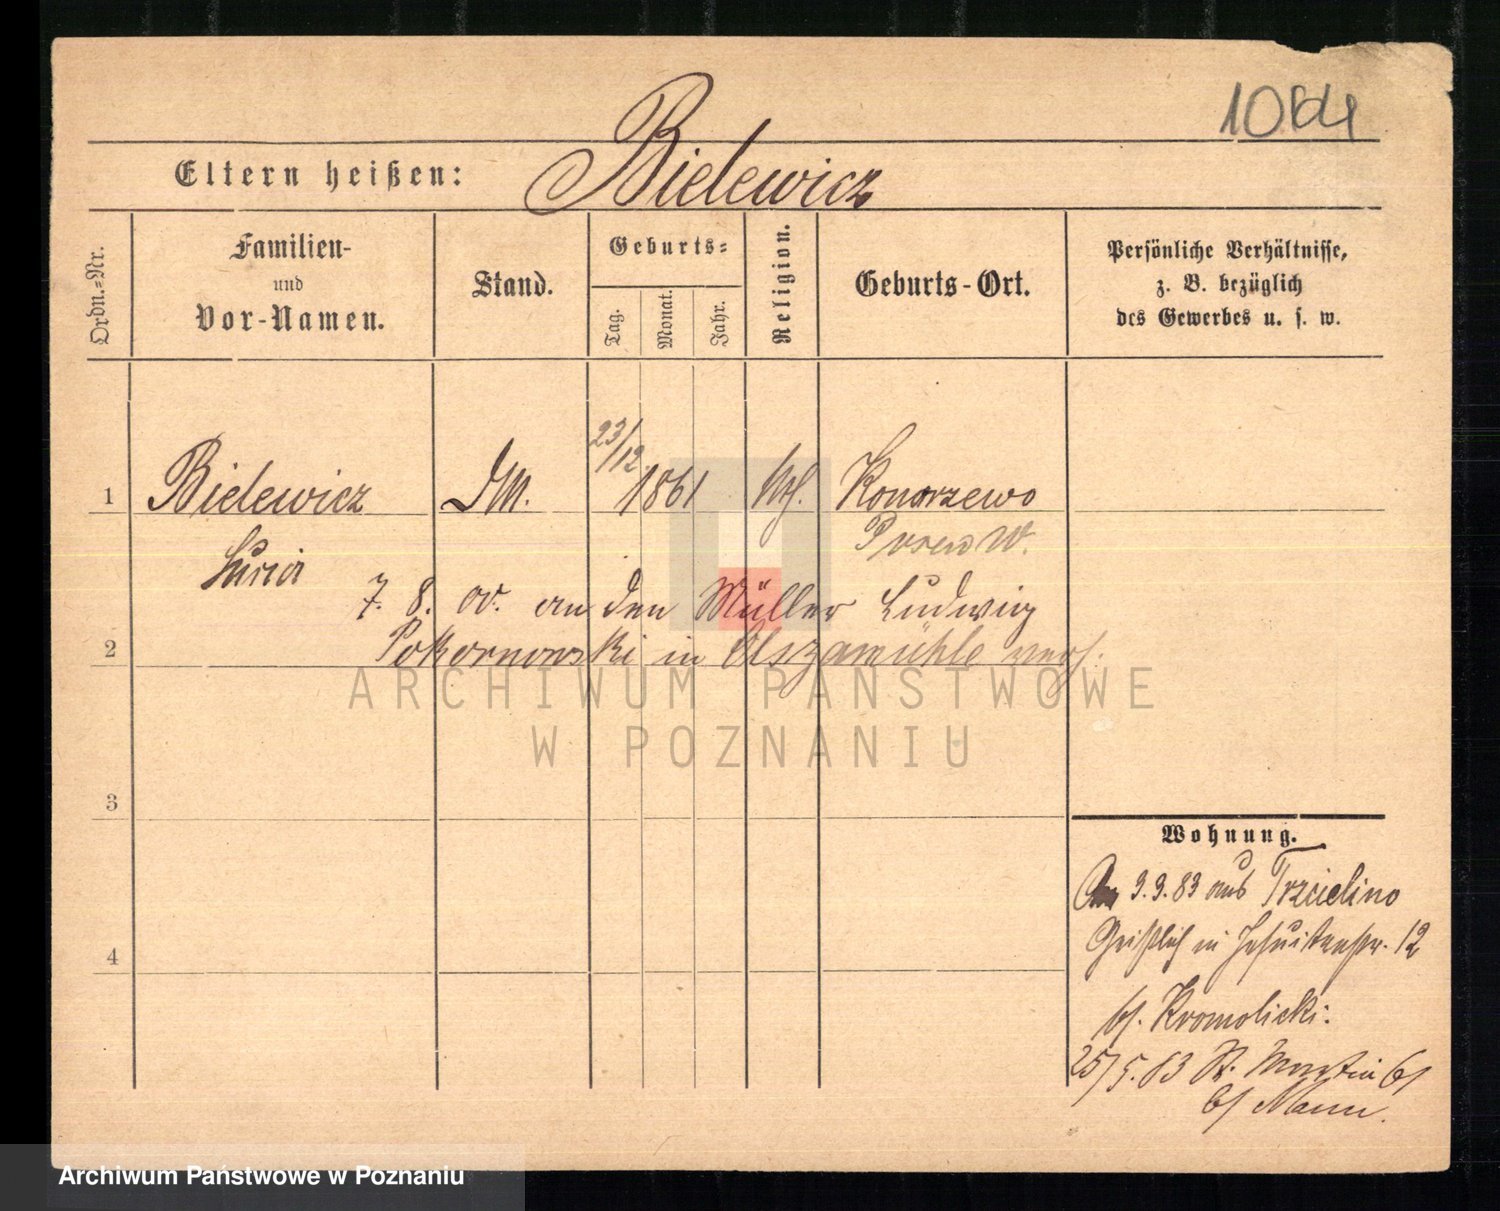 1084
Eltern heißen: Bielewicz
Ordn.=Nr.
Familien-
und
Vor-Namen.
Stand.
Geburts=
Tag.
Monat.
Jahr.
Religion.
Geburts-Ort.
Persönliche Verhältnisse,
z. B. bezüglich
des Gewerbes u. s. w.
1 Bielewicz DM. 23/12 1861 kth. Konarzewo
Posen W.
7. 8. an den Müller Ludwig
2 Pokornowski in Olszamühle verh.
ARCHIWUM PAŃSTWOWE
W POZNANIU
3
Wohnung.
3.3.83 aus Trzcielino
in Jesuitenstr. 12
4
bei Kromolicki.
25/5.83 St. Martin 61
bei Mann.
Archiwum Państwowe w Poznaniu